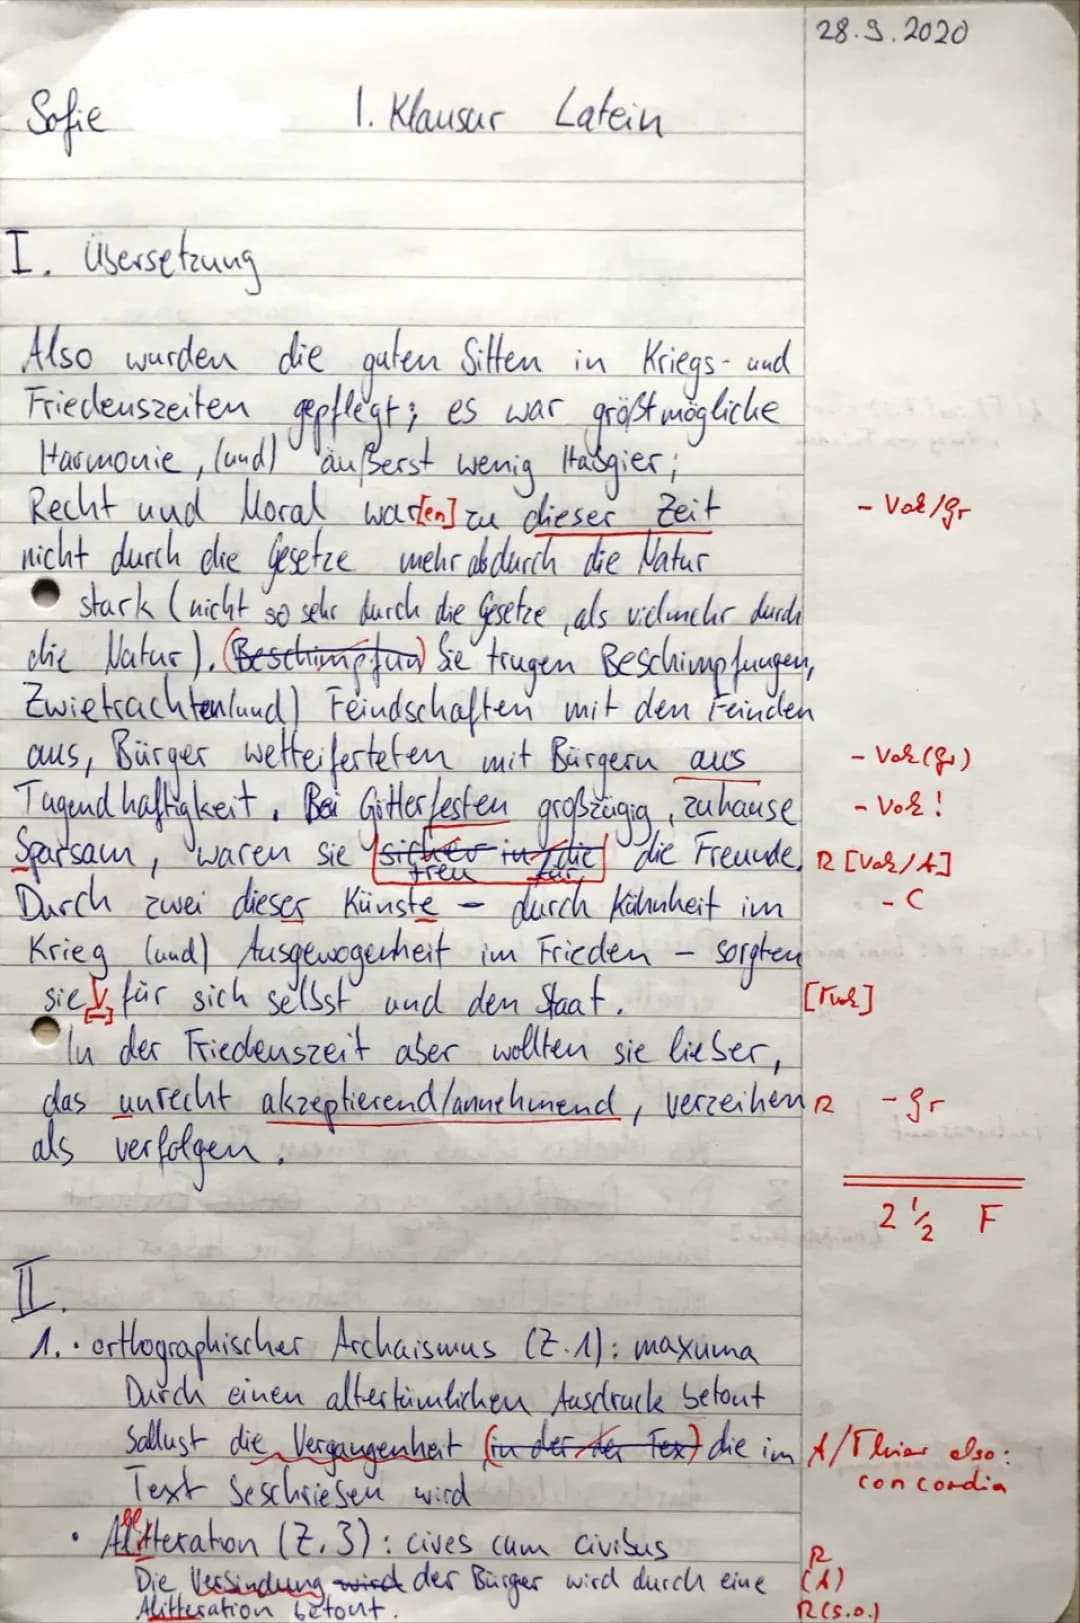 28.9.2020
Sofie 1. Klausur Latein
I. Übersetzung
Also wurden die guten Sitten in Kriegs- und
Friedenszeiten gepflegt; es war größtmögliche
Harmonie, (und) äußerst wenig Habgier;
Recht und Moral war[en] zu dieser Zeit - Vok/gr
nicht durch die Gesetze mehr als durch die Natur
stark (nicht so sehr durch die Gesetze, als vielmehr durch
die Natur). (Beschimpfun) Sie trugen Beschimpfungen,
Zwietrachten(und) Feindschaften mit den Feinden
aus, Bürger wetteiferteten mit Bürgern aus - Vok(gr)
Tugendhaftigkeit. Bei Götterfesten großzügig, zuhause - Vok!
Sparsam, waren sie sicher in die die Freunde. R [Vok/A]
treu für
Durch zwei dieser Künste – durch Kühnheit im - C
Krieg (und) Ausgewogenheit im Frieden – sorgten
sie V für sich selbst und den Staat.
In der Friedenszeit aber wollten sie lieber,
das unrecht akzeptierend/annehmend, verzeihen R - gr
als verfolgen.
2 1/2 F
II.
1. • orthographischer Archaismus (Z.1): maxuma
Durch einen altertümlichen Ausdruck betont
Sallust die Vergangenheit (in der der Tex) die im A/T hier also:
Text beschrieben wird concordia
• Alitteration (Z.3): cives cum civibus R
Die Verbindung wird der Bürger wird durch eine (A)
Alitteration betont. R(s.o.)